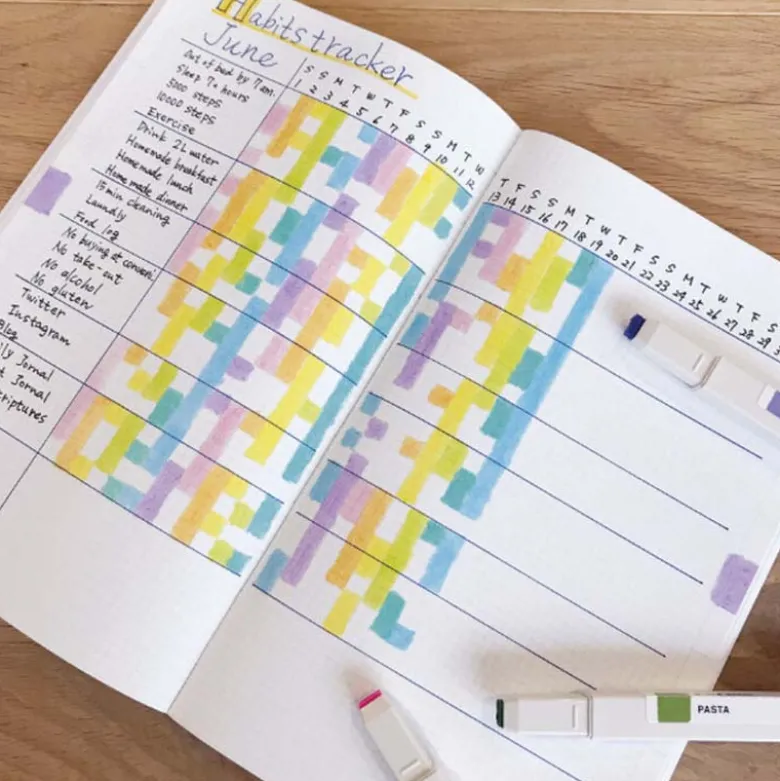 Habits tracker
June
S S M T W T F S S M T W
1 2 3 4 5 6 7 8 9 10 11 12
Out of bed by 7 am.
Sleep 7+ hours
5000 steps
10000 steps
Exercise
Drink 2L water
Homemade breakfast
Homemade lunch
Homemade dinner
15 min cleaning
Laundly
Food log
No buying at conveni
No take-out
No alcohol
No gluten
Twitter
Instagram
Blog
Jornal
Jornal
T F S S M T W T F S S M T W T F S
13 14 15 16 17 18 19 20 21 22 23 24 25 26 27 28 29
PASTA